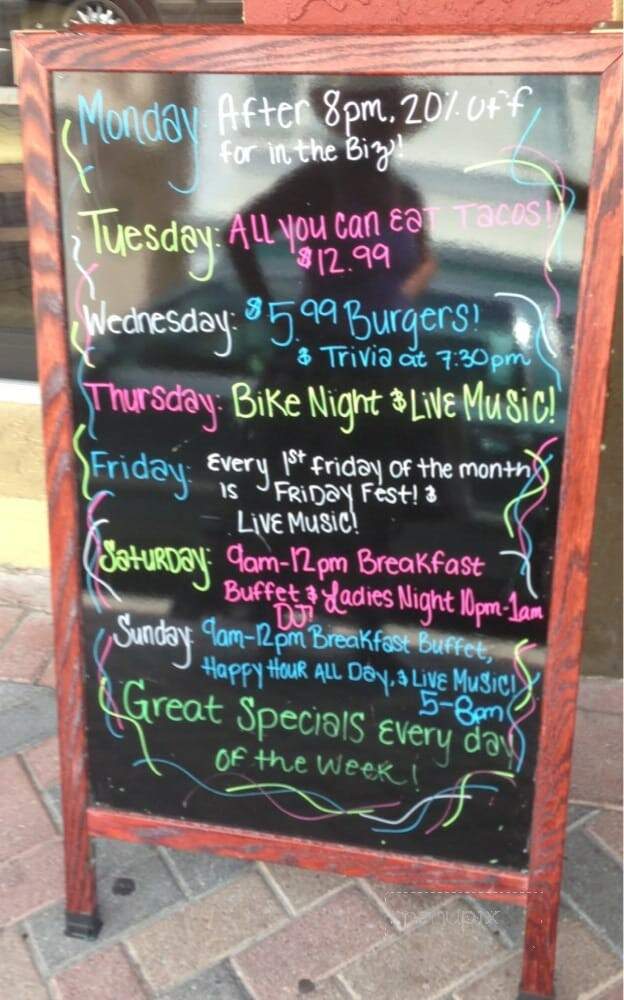 Monday: After 8pm, 20% off
for in the Biz!
Tuesday: All you can eat Tacos!
$12.99
Wednesday: $5.99 Burgers!
& Trivia at 7:30pm
Thursday: Bike Night & Live Music!
Friday: Every 1st friday of the month
is Friday Fest! &
Live Music!
Saturday: 9am-12pm Breakfast
Buffet & Ladies Night 10pm-1am
DJ!
Sunday: 9am-12pm Breakfast Buffet,
Happy Hour All Day, & Live Music!
5-8pm
Great Specials every day
of the week!
menupix